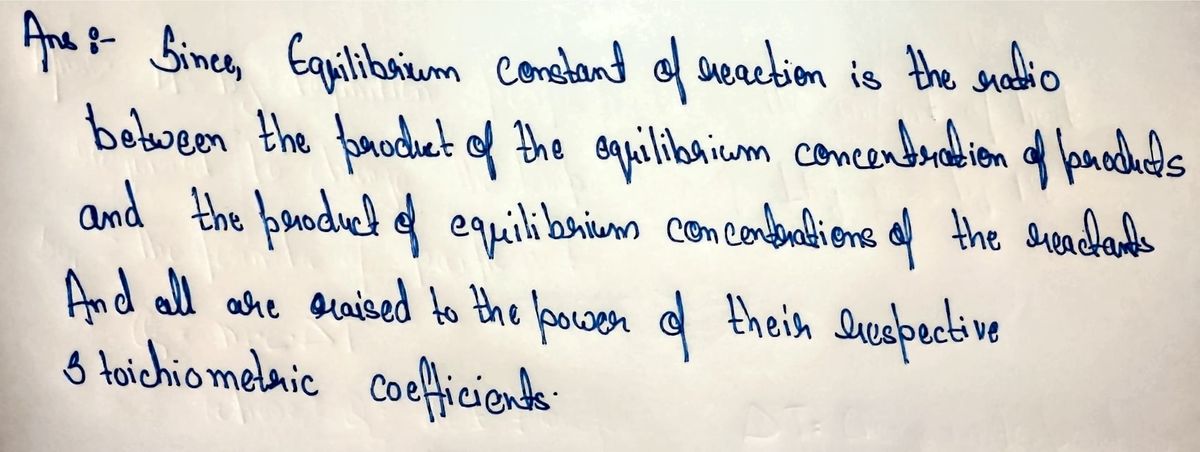 Ans :- Since, Equilibrium constant of reaction is the ratio
between the product of the equilibrium concentration of products
and the product of equilibrium concentrations of the reactants
And all are raised to the power of their respective
stoichiometric coefficients.